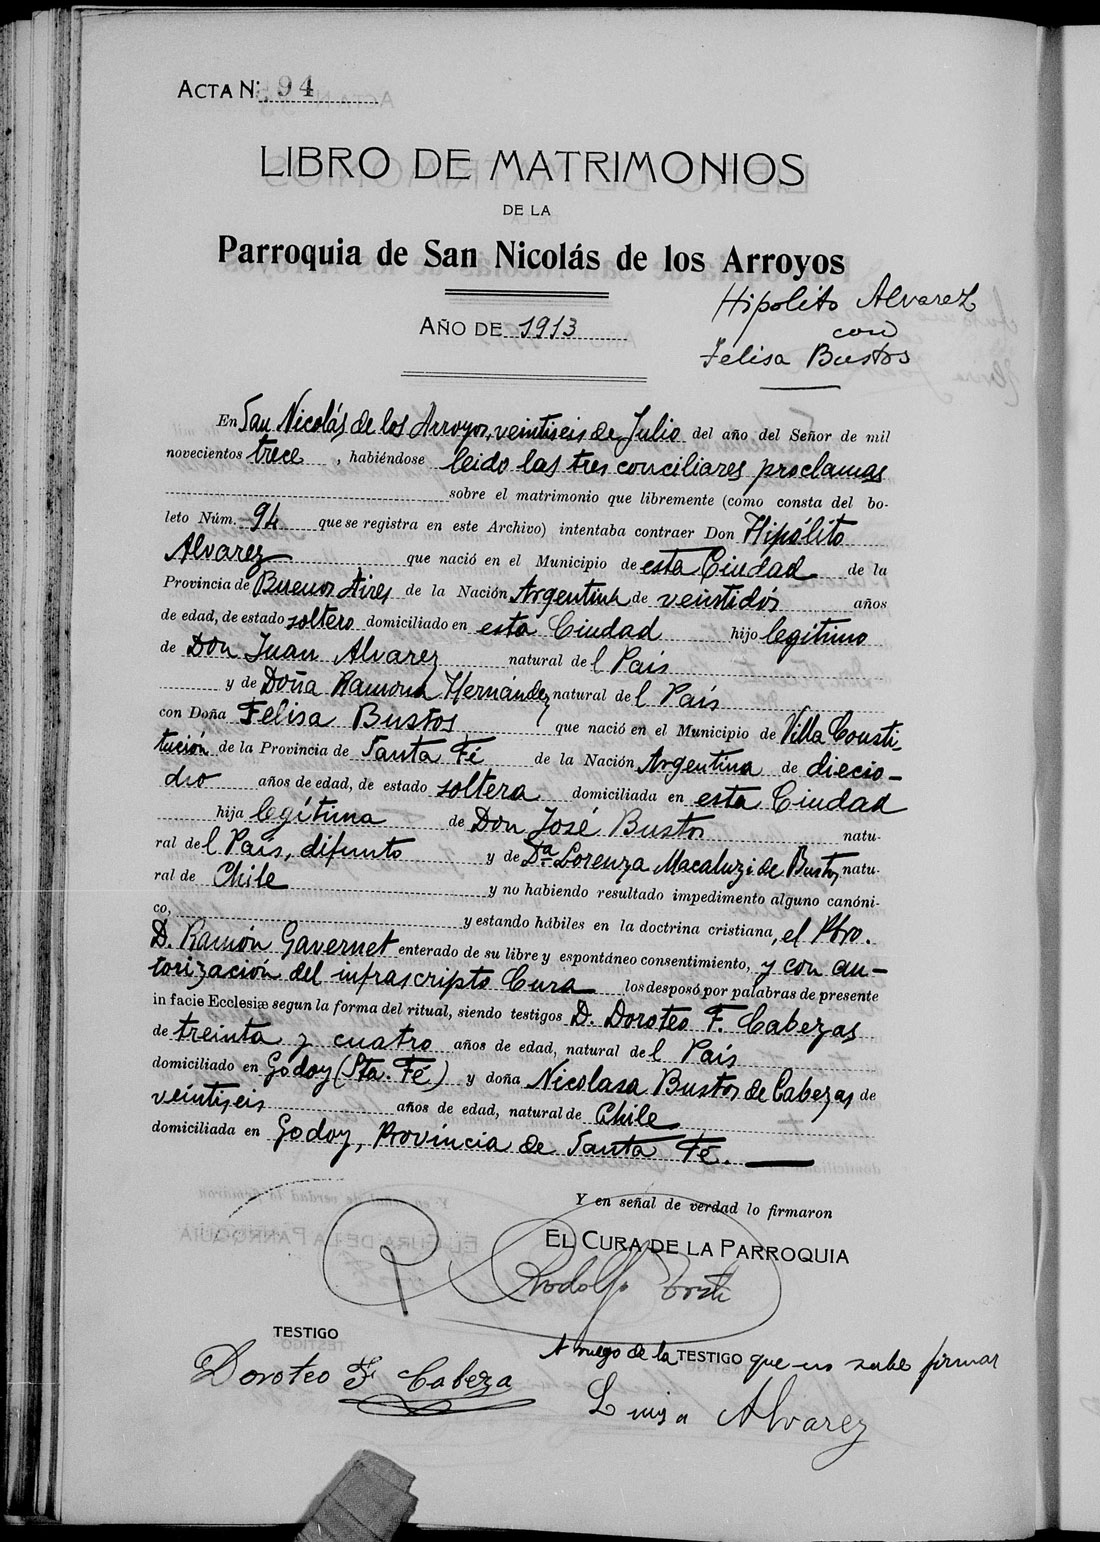 ACTA N.º 94
LIBRO DE MATRIMONIOS
DE LA
Parroquia de San Nicolás de los Arroyos
Hipolito Alvarez
con
Felisa Bustos
AÑO DE 1913
En San Nicolás de los Arroyos, veintiseis de Julio del año del Señor de mil
novecientos trece, habiéndose leido las tres conciliares proclamas
sobre el matrimonio que libremente (como consta del bo-
leto Núm. 94 que se registra en este Archivo) intentaba contraer Don Hipólito
Alvarez que nació en el Municipio de esta Ciudad de la
Provincia de Buenos Aires de la Nación Argentina de veintidós años
de edad, de estado soltero domiciliado en esta Ciudad hijo legítimo
de Don Juan Alvarez natural del País
y de Doña Ramona Hernández natural del País
con Doña Felisa Bustos que nació en el Municipio de Villa Consti
tución de la Provincia de Santa Fé de la Nación Argentina de diecio-
cho años de edad, de estado soltera domiciliada en esta Ciudad
hija legítima de Don José Bustos natu-
ral del País, difunto y de Da. Lorenza Macaluzi de Bustos natu-
ral de Chile y no habiendo resultado impedimento alguno canóni-
co, y estando hábiles en la doctrina cristiana, el Pbro.
D. Ramón Gavernet enterado de su libre y espontáneo consentimiento, y con au-
torización del infrascripto Cura los desposó por palabras de presente
in facie Ecclesiæ segun la forma del ritual, siendo testigos D. Doroteo F. Cabezas
de treinta y cuatro años de edad, natural del País
domiciliado en Godoy (Sta. Fé) y doña Nicolasa Bustos de Cabezas de
veintiseis años de edad, natural de Chile
domiciliada en Godoy, Provincia de Santa Fé.
Y en señal de verdad lo firmaron
EL CURA DE LA PARROQUIA
Rodolfo
TESTIGO
Doroteo F Cabeza
A ruego de la TESTIGO que no sabe firmar
Luisa Alvarez